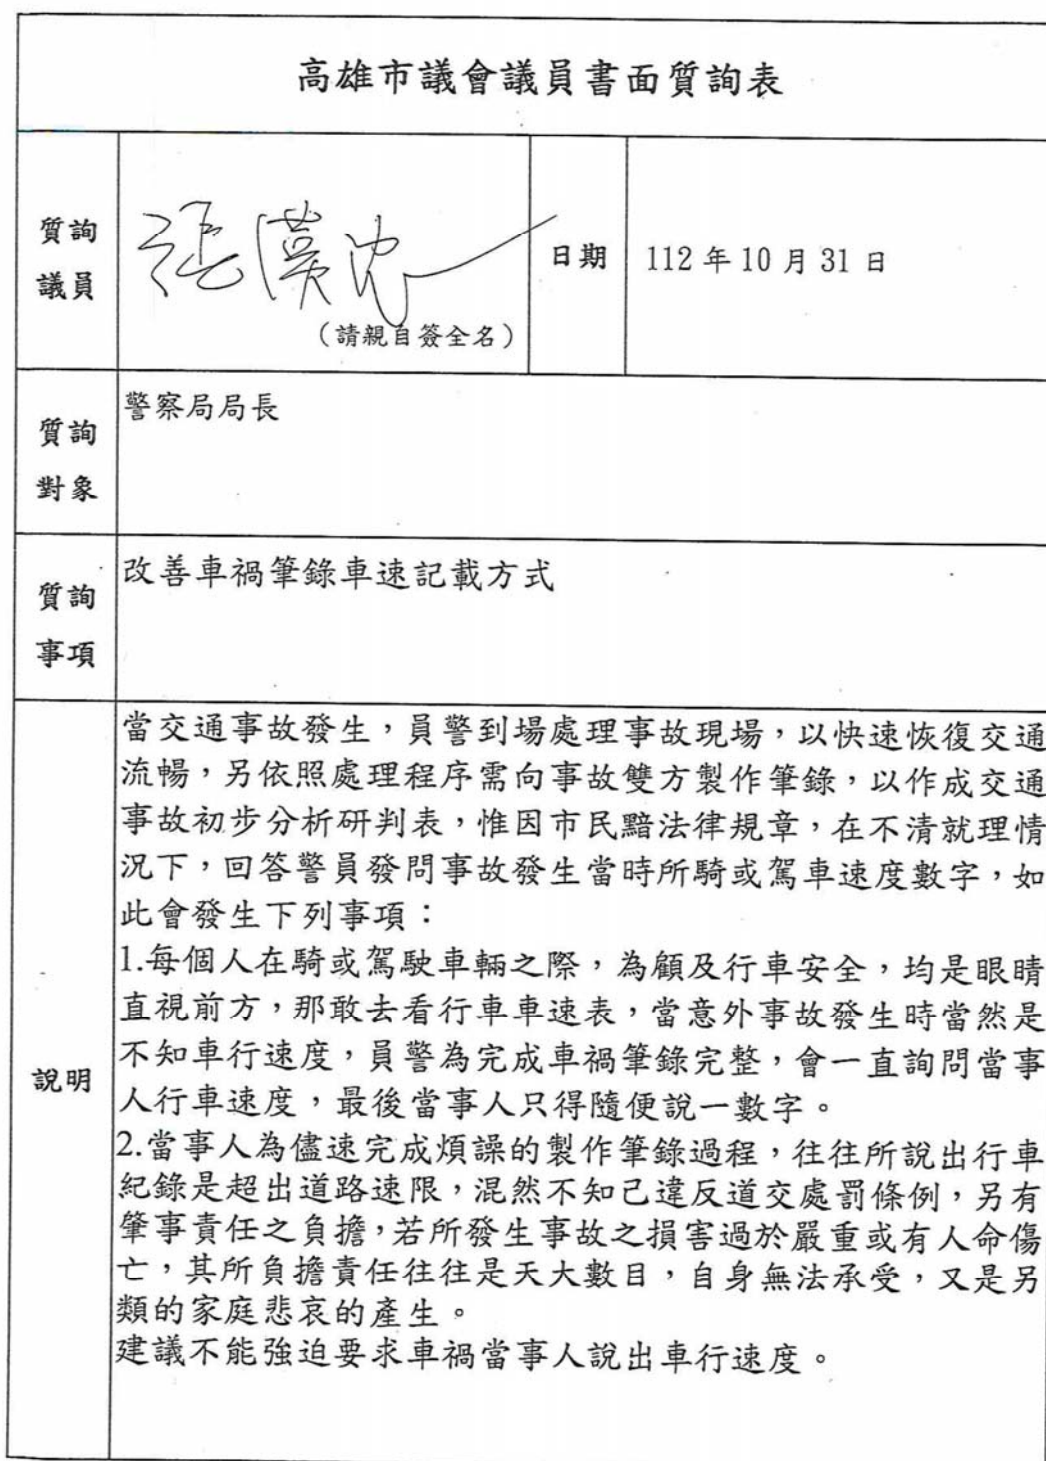 高雄市議會議員書面質詢表
質詢
議員
張漢忠
(請親自簽全名)
日期
112年10月31日
質詢
對象
警察局局長
質詢
事項
改善車禍筆錄車速記載方式
說明
當交通事故發生，員警到場處理事故現場，以快速恢復交通
流暢，另依照處理程序需向事故雙方製作筆錄，以作成交通
事故初步分析研判表，惟因市民黯法律規章，在不清就理情
況下，回答警員發問事故發生當時所騎或駕車速度數字，如
此會發生下列事項：
1.每個人在騎或駕駛車輛之際，為顧及行車安全，均是眼睛
直視前方，那敢去看行車車速表，當意外事故發生時當然是
不知車行速度，員警為完成車禍筆錄完整，會一直詢問當事
人行車速度，最後當事人只得隨便說一數字。
2.當事人為儘速完成煩譟的製作筆錄過程，往往所說出行車
紀錄是超出道路速限，混然不知己違反道交處罰條例，另有
肇事責任之負擔，若所發生事故之損害過於嚴重或有人命傷
亡，其所負擔責任往往是天大數目，自身無法承受，又是另
類的家庭悲哀的產生。
建議不能強迫要求車禍當事人說出車行速度。